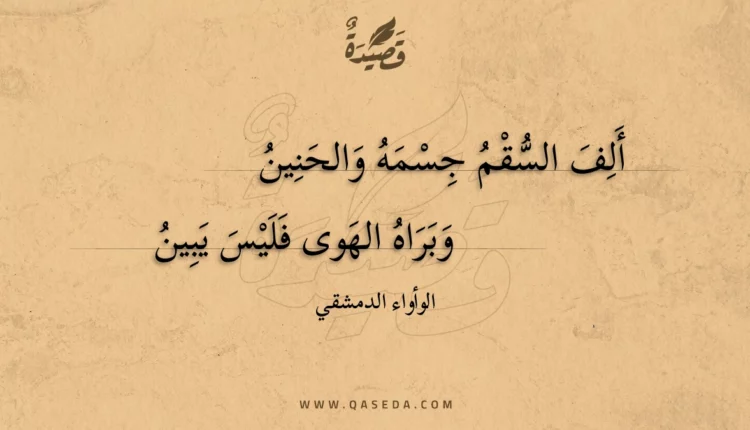 قَصِيْدَةٌ
أَلِفَ السُّقْمُ جِسْمَهُ وَالحَنِينُ
وَبَرَاهُ الهَوى فَلَيْسَ يَبِينُ
الوأواء الدمشقي
WWW.QASEDA.COM